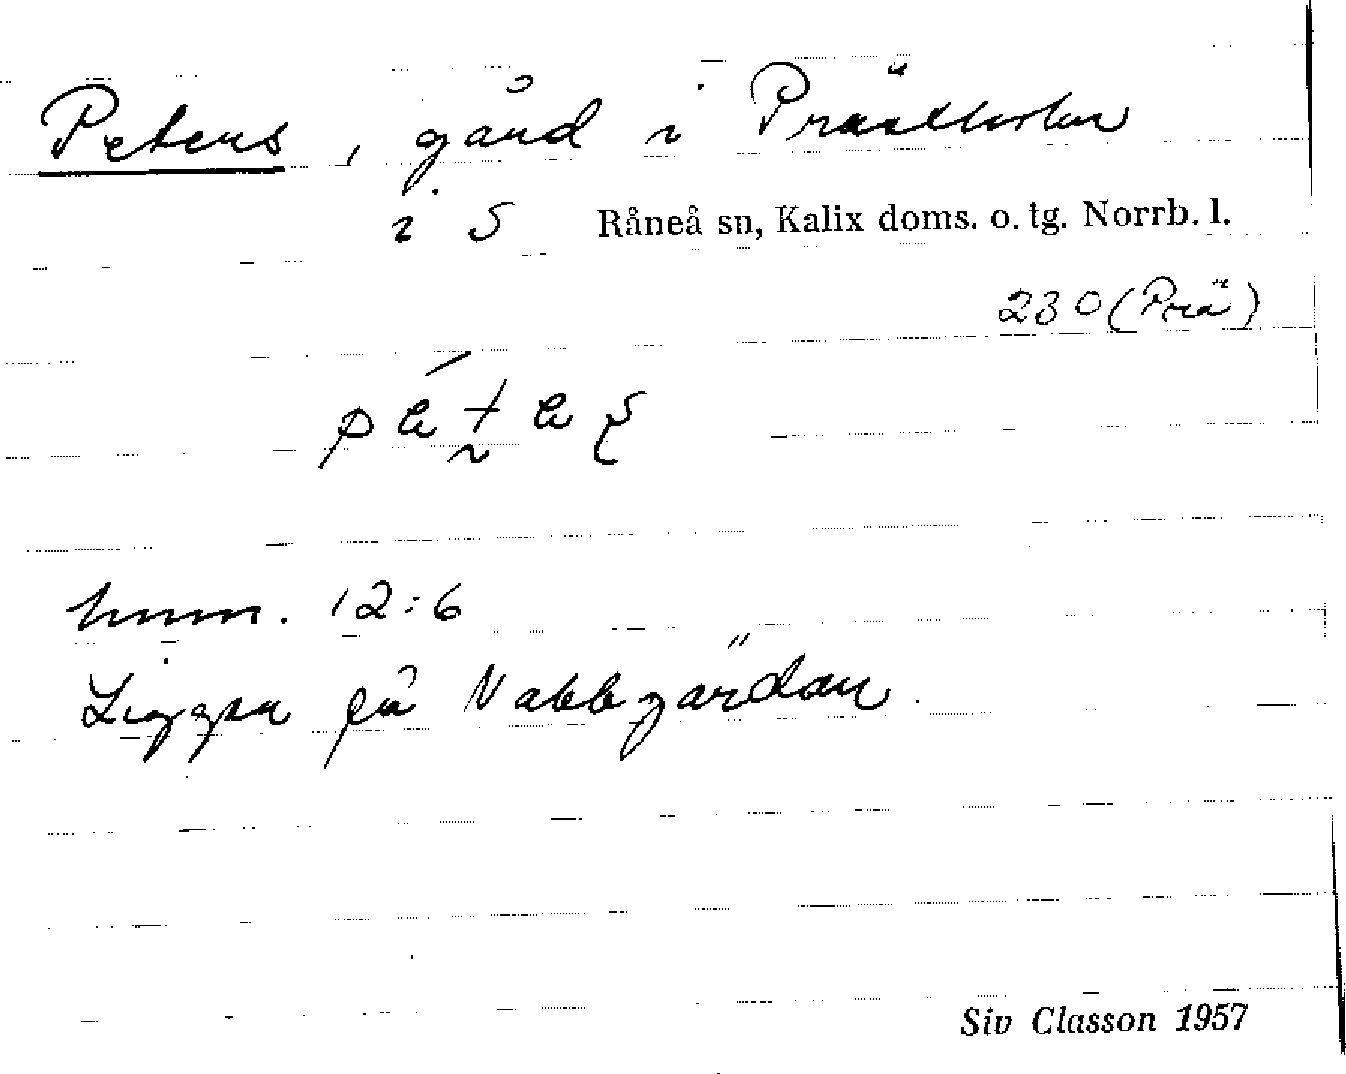 Peters, gård i Prästholm
i S Råneå sn, Kalix doms. o. tg. Norrb. l.
230 (Prä)
hmn. 12:6
Ligger på Nabbgärdan.
Siv Classon 1957